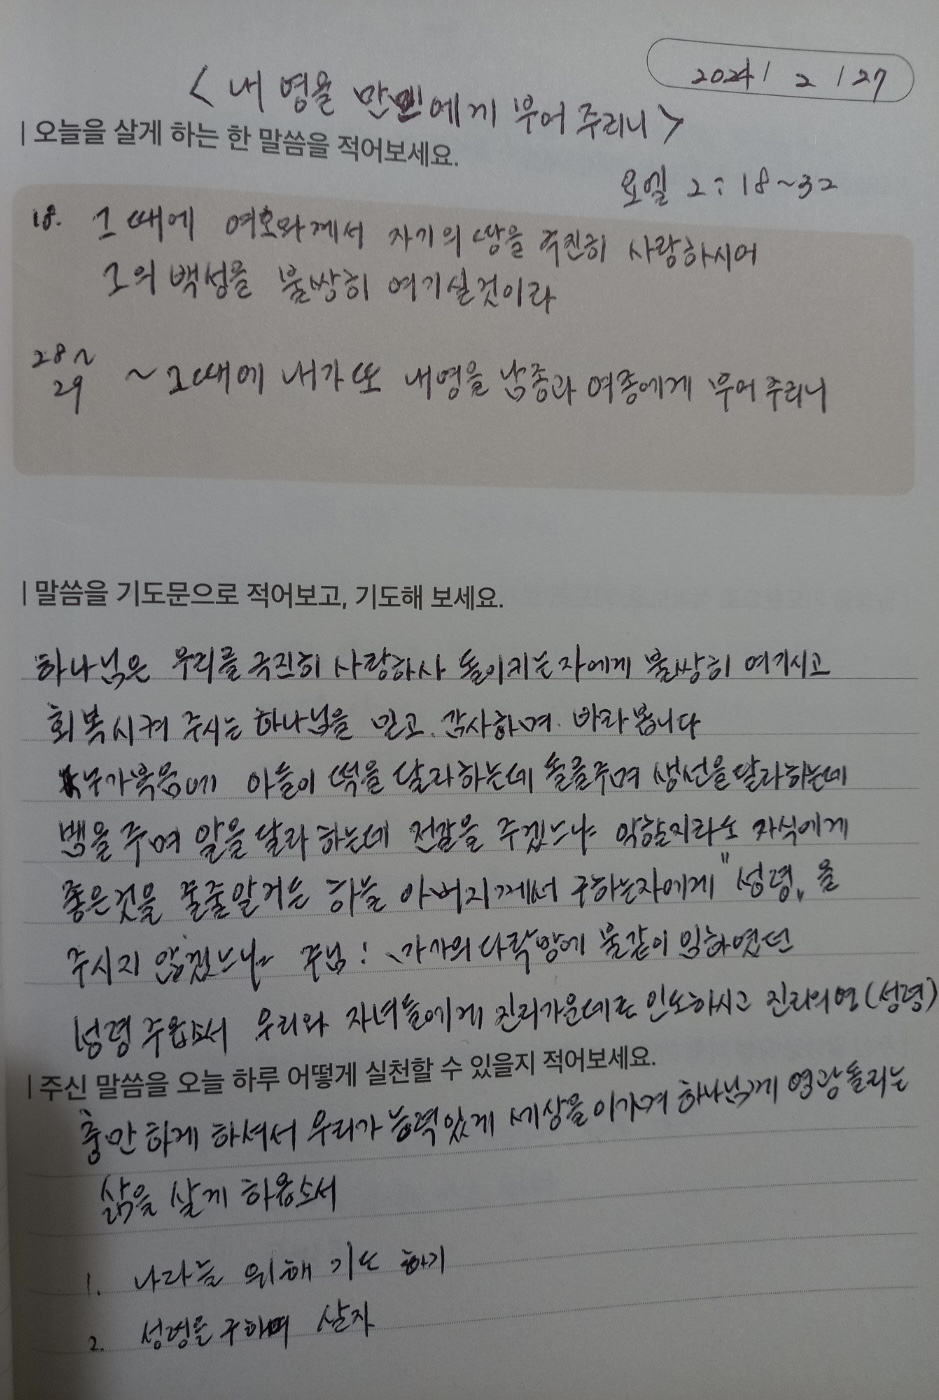 2024 / 2 / 27
< 내 영을 만민에게 부어 주리니 >
| 오늘을 살게 하는 한 말씀을 적어보세요.
요엘 2:18~32
18. 그 때에 여호와께서 자기의 땅을 극진히 사랑하시어
그의 백성을 불쌍히 여기실것이라
28~
29 ~ 그때에 내가 또 내영을 남종과 여종에게 부어 주리니
| 말씀을 기도문으로 적어보고, 기도해 보세요.
하나님은 우리를 극진히 사랑하사 돌이키는 자에게 불쌍히 여기시고
회복시켜 주시는 하나님을 믿고. 감사하며. 바라봅니다
누가복음에 아들이 떡을 달라하는데 돌을주며 생선을 달라하는데
뱀을 주며 알을 달라 하는데 전갈을 주겠느냐 악할지라도 자식에게
좋은것을 줄줄알거든 하늘 아버지께서 구하는자에게 "성령"을
주시지 않겠느냐 주님! 마가의 다락방에 불같이 임하였던
성령 주옵소서 우리와 자녀들에게 진리가운데로 인도하시고 진리의영(성령)
| 주신 말씀을 오늘 하루 어떻게 실천할 수 있을지 적어보세요.
충만하게 하셔서 우리가 능력있게 세상을 이기며 하나님께 영광돌리는
삶을 살게 하옵소서
1. 나라를 위해 기도 하기
2. 성령을 구하며 살자